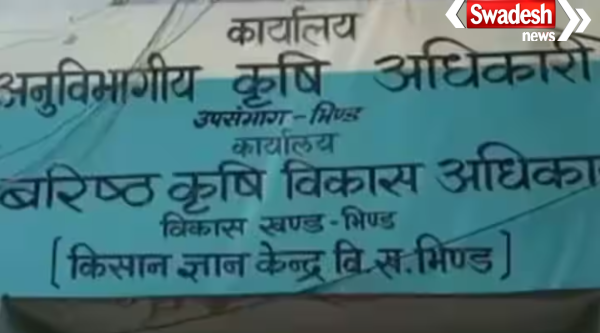 Swadesh
news
कार्यालय
अनुविभागीय कृषि अधिकारी
उपसंभाग - भिण्ड
कार्यालय
बरिष्ठ कृषि विकास अधिका
विकास खण्ड - भिण्ड
[ किसान ज्ञान केन्द्र वि.स.भिण्ड ]